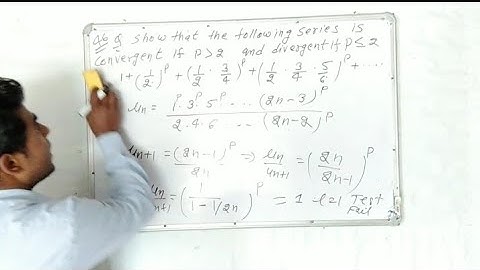 Q6 Q show that the following series is
convergent if P>2 and divergent if P≤2
1+(1/2)^P+(1/2 · 3/4)^P+(1/2 · 3/4 · 5/6)^P+....
un= 1^P·3^P·5^P ... (2n-3)^P / 2·4·6 ... (2n-2)^P
un+1=(2n-1/2n)^P ⇒ un/un+1 = (2n/2n-1)^P
un/un+1=(1/1-1/2n)^P = 1 Test
Fail